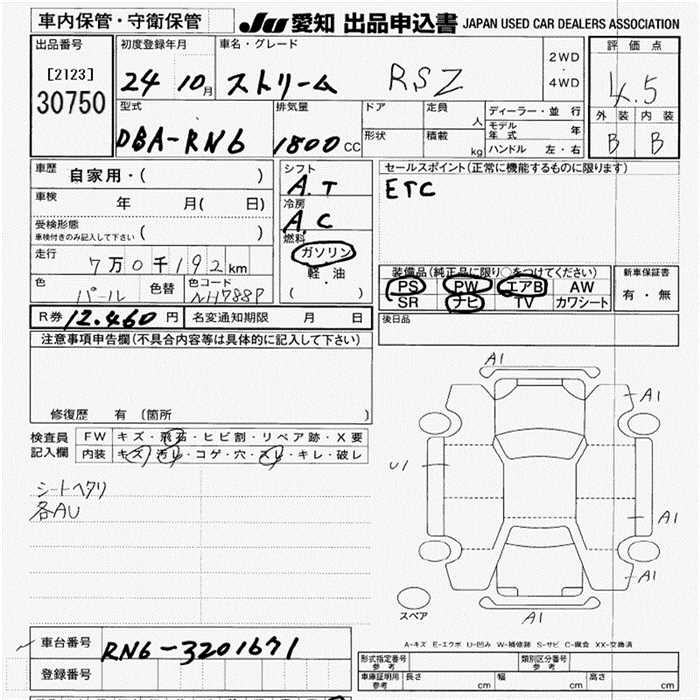 車内保管・守衛保管
JU 愛知 出品申込書 JAPAN USED CAR DEALERS ASSOCIATION
出品番号
[2123]
30750
初度登録年月
24 10月
車名・グレード
ストリーム RSZ
2WD
・
4WD
評価点
4.5
外装 内装
B B
型式
DBA-RN6
排気量
1800CC
ドア
定員
人
形状
積載
kg
ディーラー・並行
モデル年式 年
ハンドル 左・右
車歴 自家用・( )
車検 年 月( 日)
受検形態
車検付きのみ記入して下さい ( )
走行 7万0千192km
色 パール
色替
色コード NH788P
シフト
A.T
冷房
A.C
燃料
ガソリン
軽・油
( )
セールスポイント(正常に機能するものに限ります)
ETC
装備品(純正品に限り○をつけてください)
PS PW エアB AW
SR ナビ TV カワシート
新車保証書
有・無
R券 12.460円
名変通知期限 月 日
後日品
注意事項申告欄(不具合内容等は具体的に記入して下さい)
修復歴 有 (箇所 )
検査員記入欄
FW キズ・飛石・ヒビ割・リペア跡・X要
内装 キズ・汚レ・コゲ・穴・スレ・キレ・破レ
シートヘタリ
各AU
A1
A1
U1
A1
A1
A1
スペア
A-キズ E-エクボ U-凹み W-補修跡 S-サビ C-腐食 XX-交換済
車台番号 RN6-3201671
登録番号
形式指定番号
参考
類別区分番号
参考
車庫証明用
参考
長さ cm 幅 cm 高さ cm